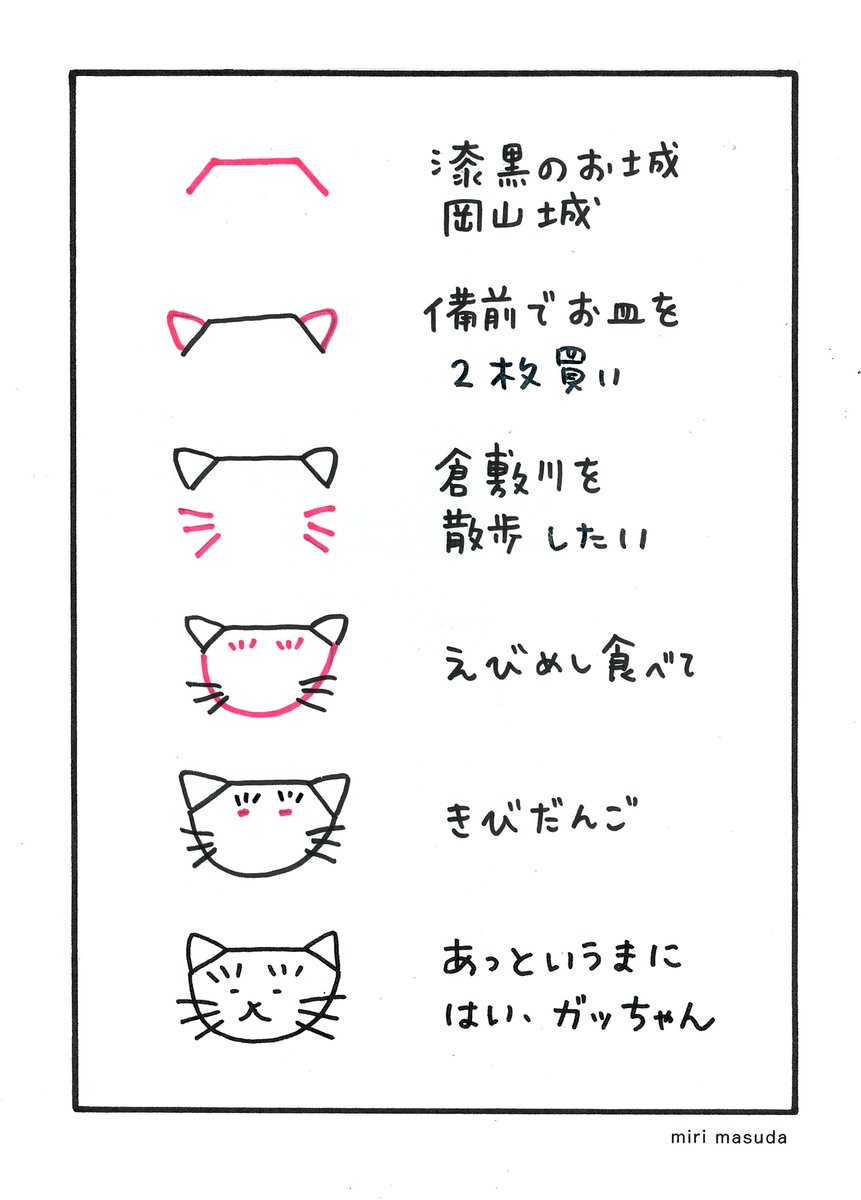 漆黒のお城
岡山城
備前でお皿を
2枚買い
倉敷川を
散歩したい
えびめし食べて
きびだんご
あっというまに
はい、ガッちゃん
miri masuda